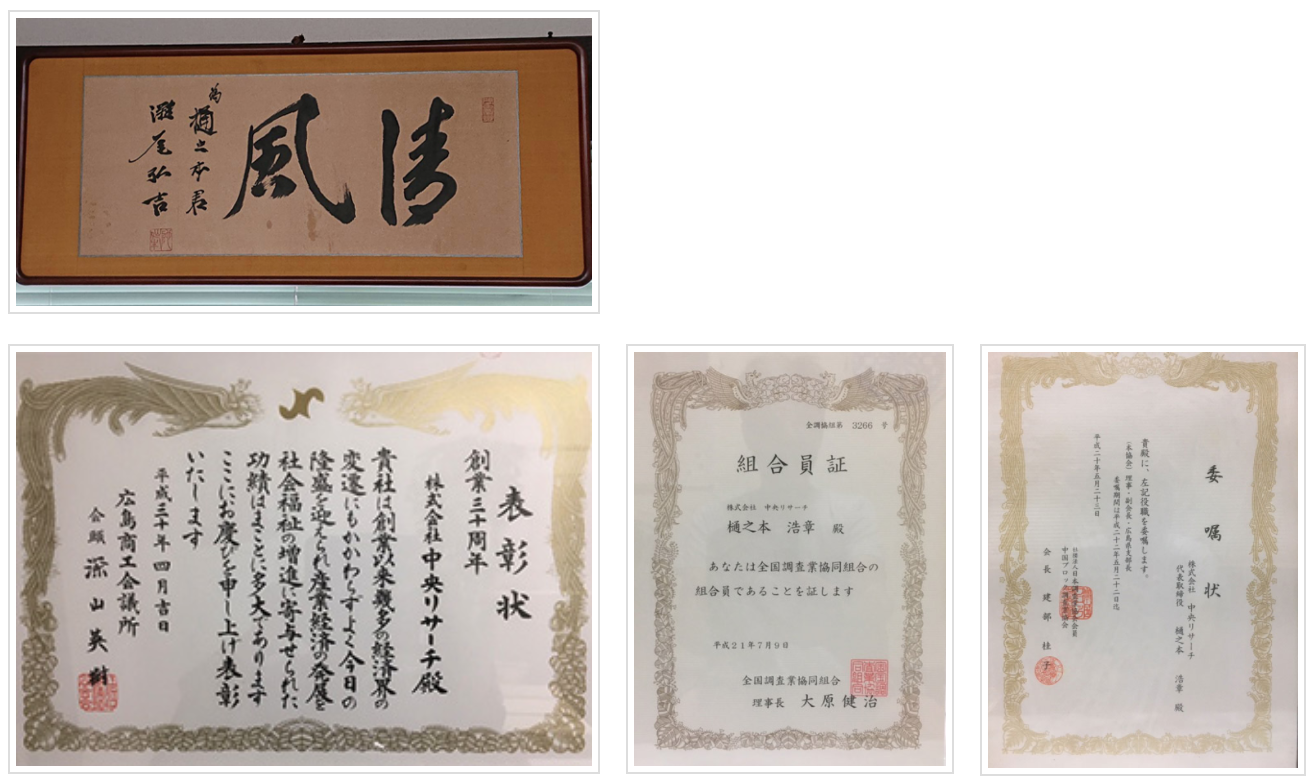 清風
為樋之本君
灘尾弘吉
表彰状
創業三十周年
株式会社中央リサーチ殿
貴社は創業以来幾多の経済界の
変遷にもかかわらずよく今日の
隆盛を迎えられ産業経済の発展と
社会福祉の増進に寄与せられた
功績はまことに多大であります
ここにお慶びを申し上げ表彰
いたします
平成三十年四月吉日
広島商工会議所
会頭 深山英樹
全調協組第 3266 号
組合員証
株式会社 中央リサーチ
樋之本 浩章 殿
あなたは全国調査業協同組合の
組合員であることを証します
平成21年7月9日
全国調査業協同組合
理事長 大原健治
委嘱状
株式会社 中央リサーチ
代表取締役 樋之本 浩章 殿
貴殿に、左記役職を委嘱します。
(本協会) 理事・副会長・広島県支部長
委嘱期間は平成二十二年五月二十二日迄
平成二十年五月二十三日
社団法人日本調査業協会会員
中国ブロック調査業協会
会長 建部 桂子